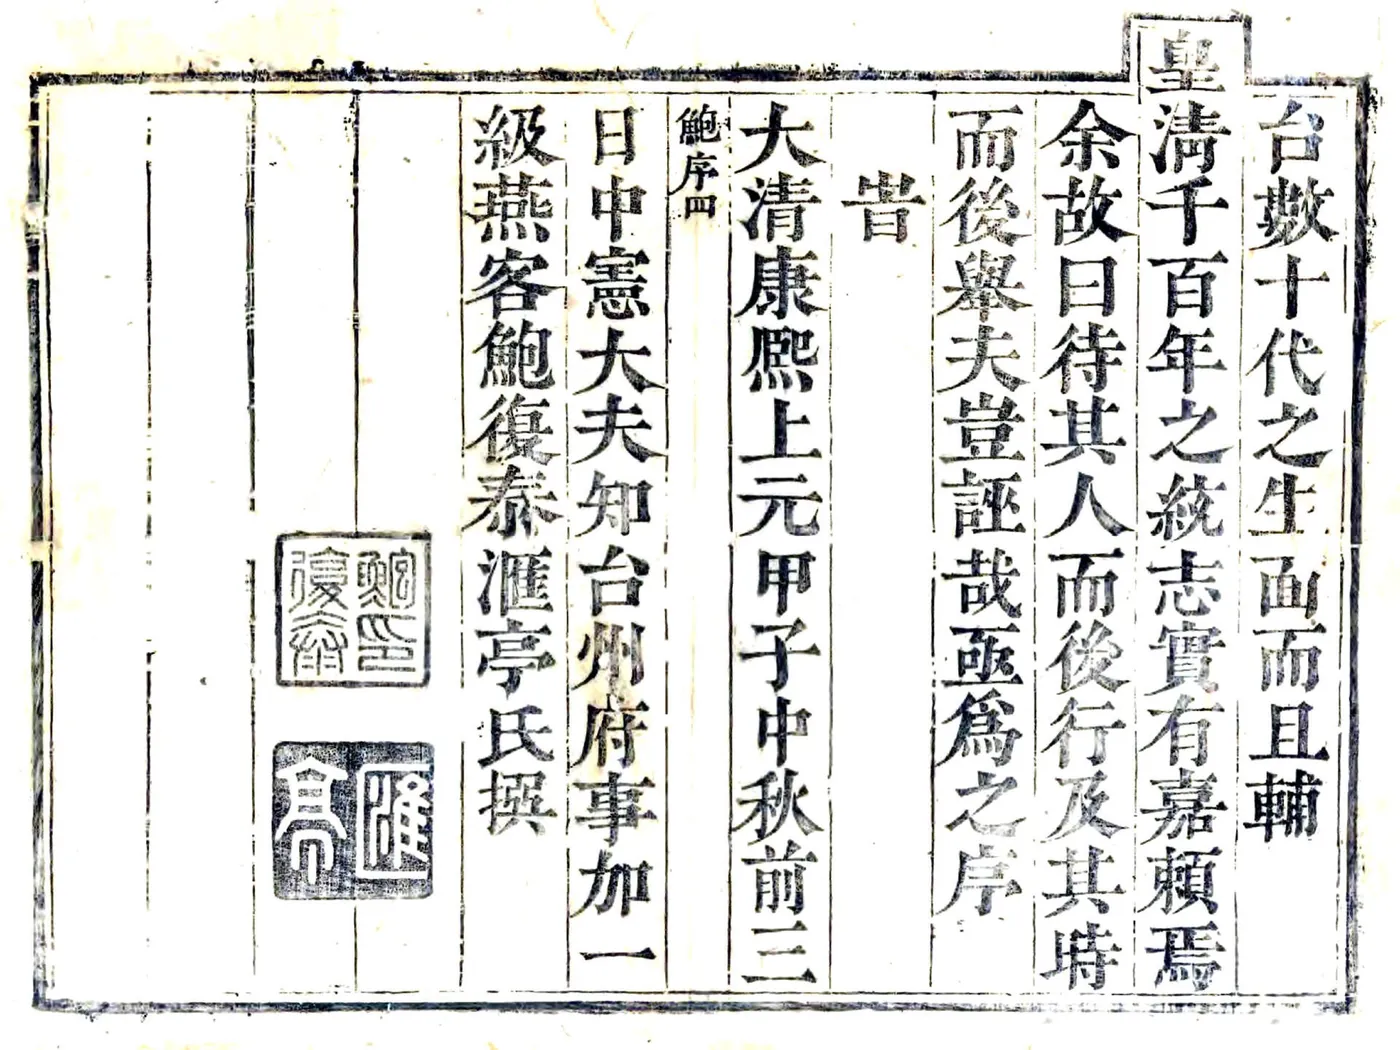 台數十代之生面而且輔
皇淸千百年之統志實有嘉頼焉
余故曰待其人而後行及其時
而後舉夫豈誣哉亟爲之序
旹
大清康熈上元甲子中秋前三
鮑序四
日中憲大夫知台州府事加一
級燕客鮑復泰滙亭氏撰
鮑印復泰
滙亭